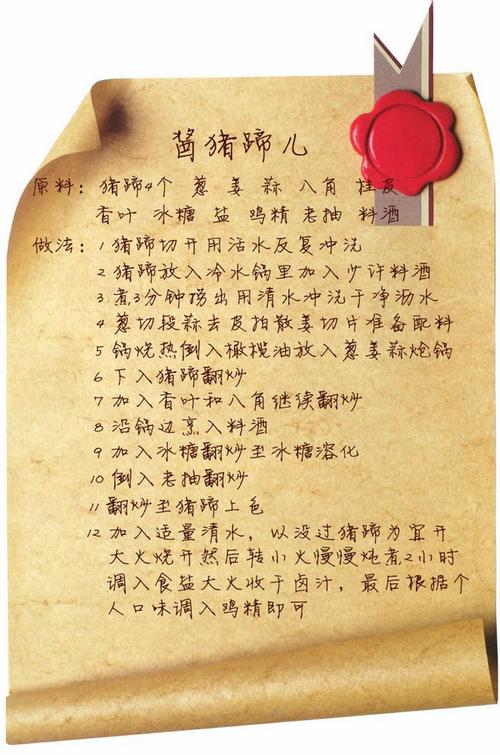 酱猪蹄儿
原料：猪蹄4个 葱 姜 蒜 八角 桂皮
香叶 冰糖 盐 鸡精 老抽 料酒
做法：1 猪蹄切开用活水反复冲洗
2 猪蹄放入冷水锅里加入少许料酒
3 煮3分钟捞出用清水冲洗干净沥水
4 葱切段蒜去皮拍散姜切片准备配料
5 锅烧热倒入橄榄油放入葱姜蒜炝锅
6 下入猪蹄翻炒
7 加入香叶和八角继续翻炒
8 沿锅边烹入料酒
9 加入冰糖翻炒至冰糖溶化
10 倒入老抽翻炒
11 翻炒至猪蹄上色
12 加入适量清水，以没过猪蹄为宜开
大火烧开然后转小火慢慢炖煮2小时
调入食盐大火收干卤汁，最后根据个
人口味调入鸡精即可